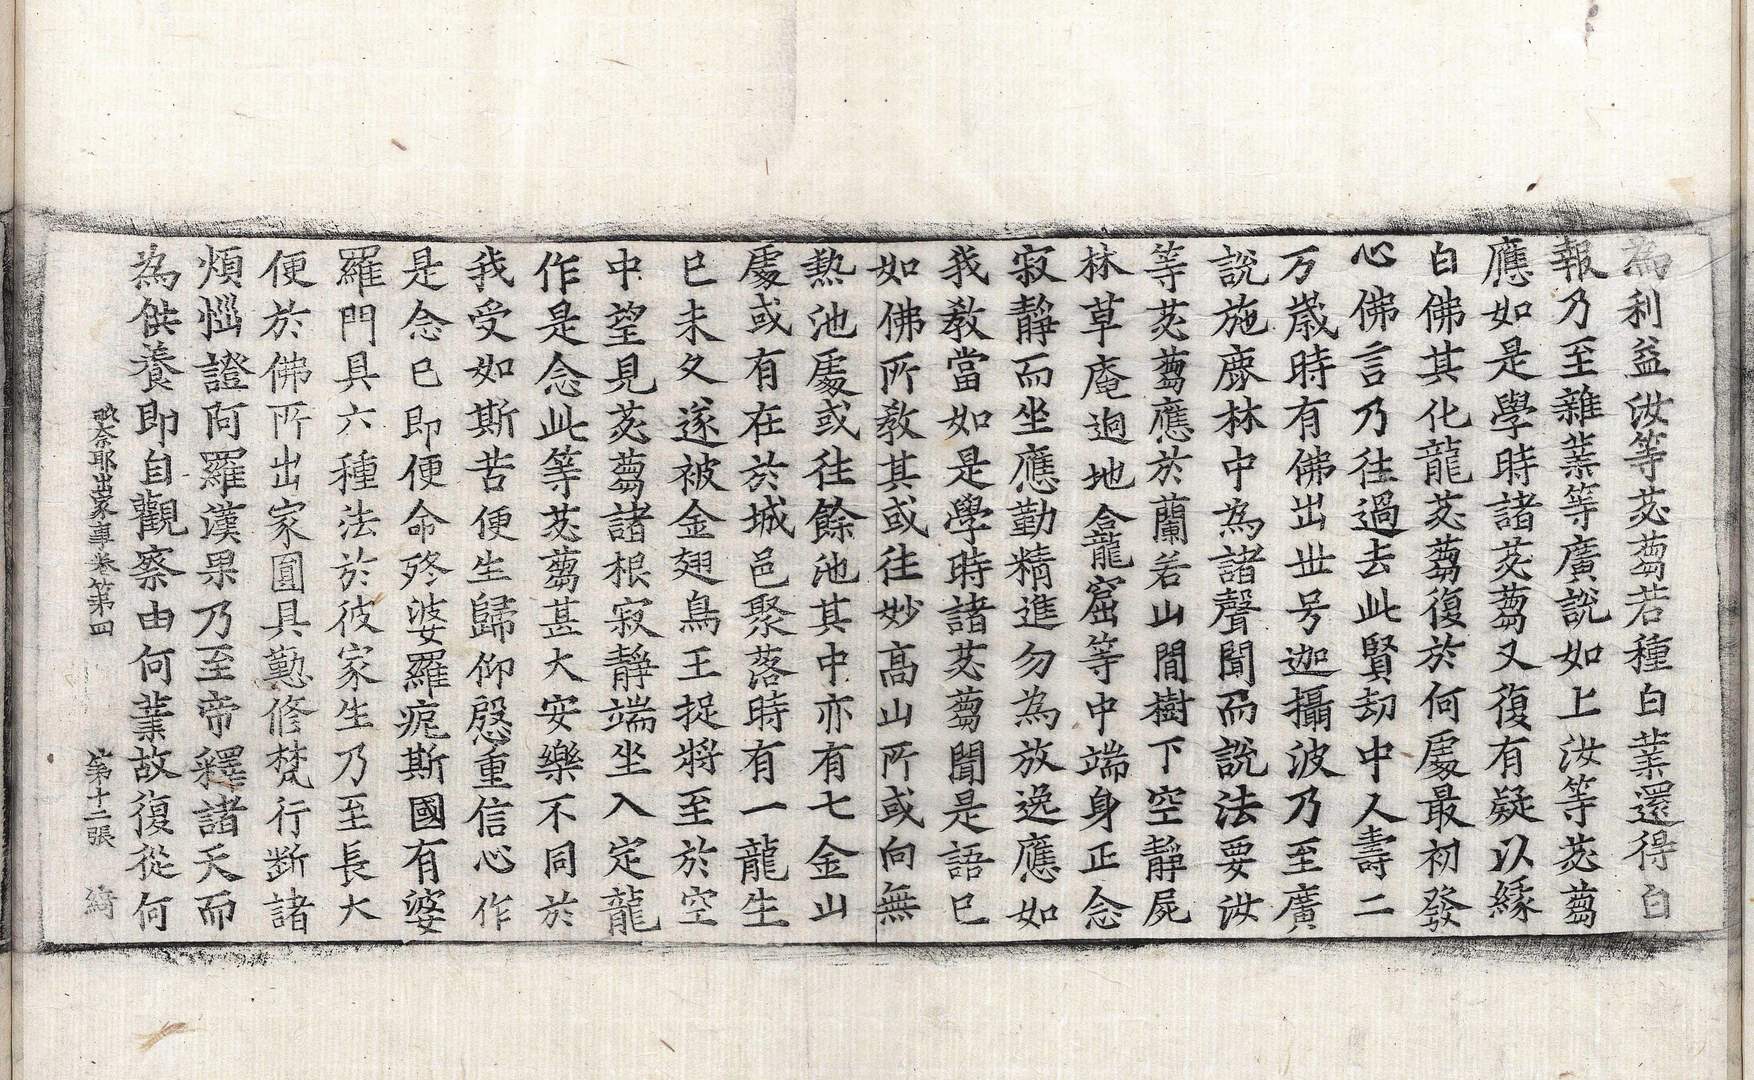 為利益汝等苾蒭若種白業還得白
報乃至雜業等廣說如上汝等苾蒭
應如是學時諸苾蒭又復有疑以緣
白佛其化龍苾蒭復於何處最初發
心佛言乃往過去此賢劫中人壽二
万歲時有佛出世号迦攝波乃至廣
說施鹿林中為諸聲聞而說法要汝
等苾蒭應於蘭若山間樹下空靜屍
林草庵逈地龕窟等中端身正念
寂靜而坐應勤精進勿為放逸應如
我教當如是學時諸苾蒭聞是語已
如佛所教其或往妙高山所或向無
熱池處或往餘池其中亦有七金山
處或有在於城邑聚落時有一龍生
已未久遂被金翅鳥王捉將至於空
中望見苾蒭諸根寂靜端坐入定龍
作是念此等苾蒭甚大安樂不同於
我受如斯苦便生歸仰慇重信心作
是念已即便命終婆羅痆斯國有婆
羅門具六種法於彼家生乃至長大
便於佛所出家圓具懃修梵行断諸
煩惱證阿羅漢果乃至帝釋諸天而
為供養即自觀察由何業故復從何
奈耶出家事卷第四 第十二張 綺